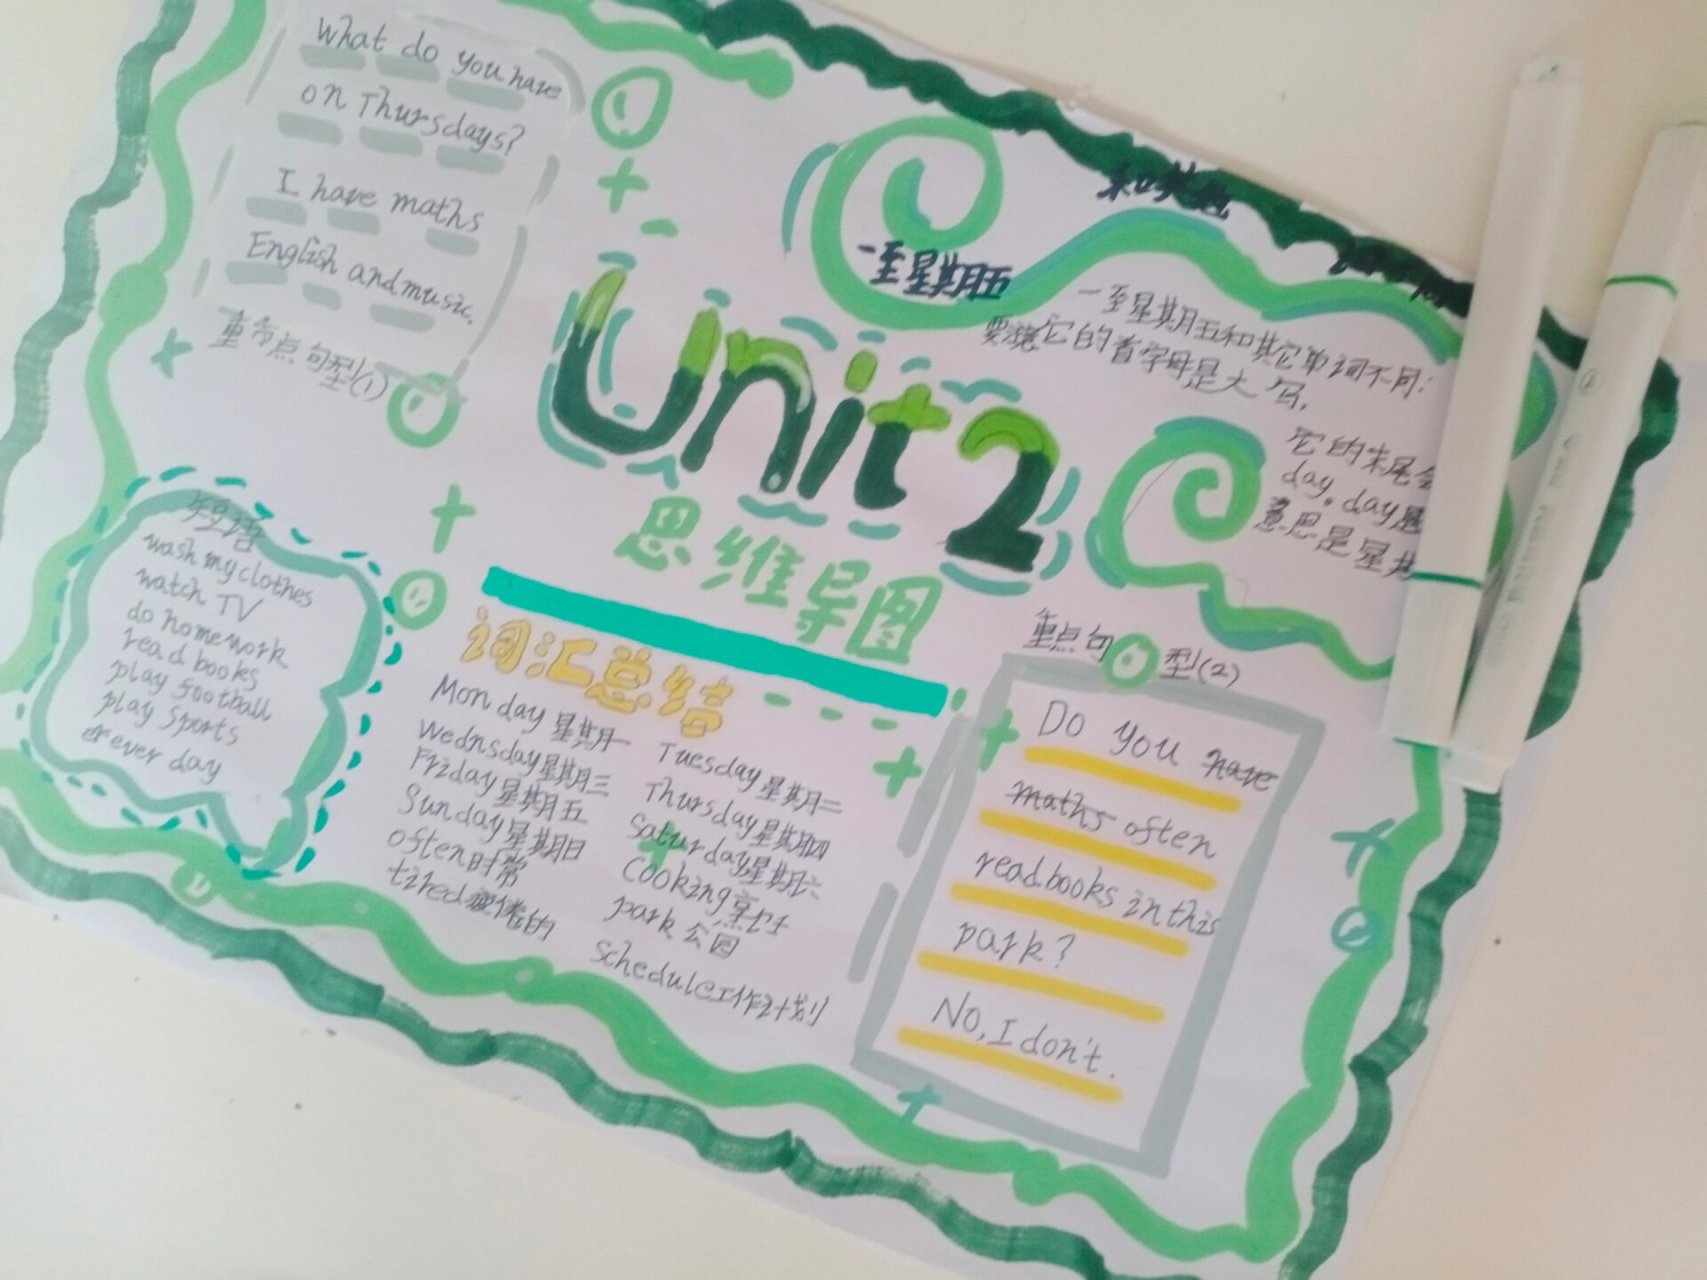 What do you have
on Thursdays?
I have maths
English and music.
重点句型(1)
Unit 2
思维导图
一至星期五
一至星期五和其它单词不同:
它的首字母是大写.
它的末尾
day。day是
意思是星
短语
wash my clothes
watch TV
do homework
read books
play football
play sports
day
词汇总结
Monday 星期一
Wednsday 星期三
Friday 星期五
Sunday 星期日
often 时常
tired 疲倦的
Tuesday 星期二
Thursday 星期四
Saturday 星期六
Cooking 烹饪
park 公园
Schedule 工作计划
重点句型(2)
Do you have
maths often
read books in this
park?
No, I don't.